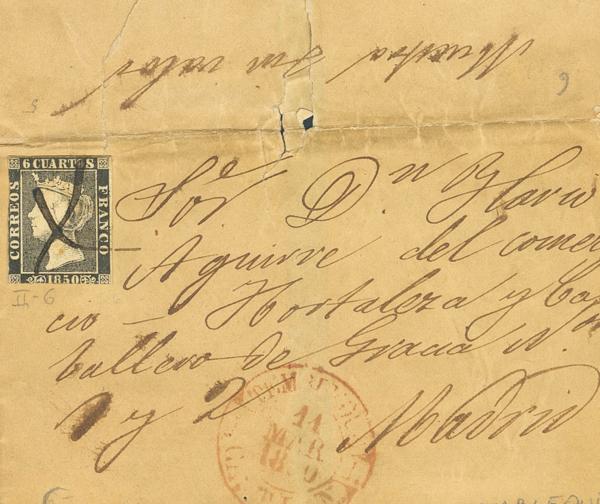 Muestra sin valor
6 CUARTOS
CORREOS
FRANCO
1850
Sor Dn Flavio
Aguirre del comer
cio — Hortaleza y Ca
ballero de Gracia N.
1 y 2 Madrid
11
MAR
1850
II-6
6